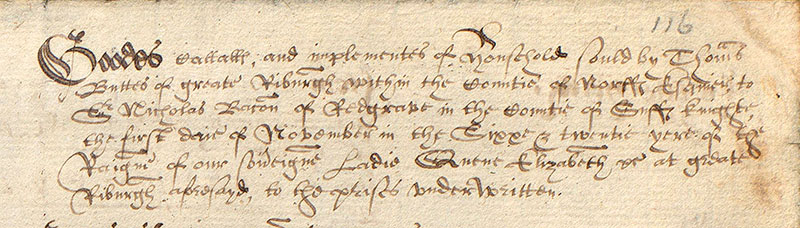 116
Goodes Cattalle, and implementes of Houshold sould by Thoms
Buttes of greate Riburgh within the Countie of Norff Esquier, to
Sr Nicholas Bacon of Redgrave in the Countie of Suff knighte,
the first daie of November in the Sixxe & twentie yere of the
Raigne of our soveigne Ladie Quene Elizabeth &c at greate
Riburgh aforesayd, to the prises underwritten.